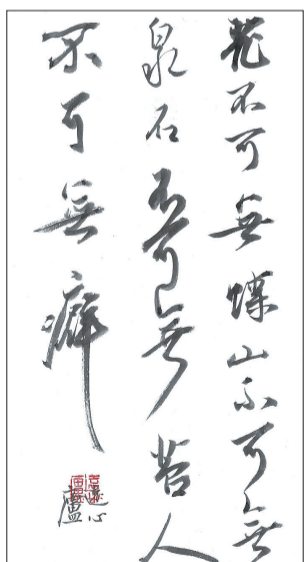 花不可無蝶山不可無
泉石不可無苔人
不可無癖